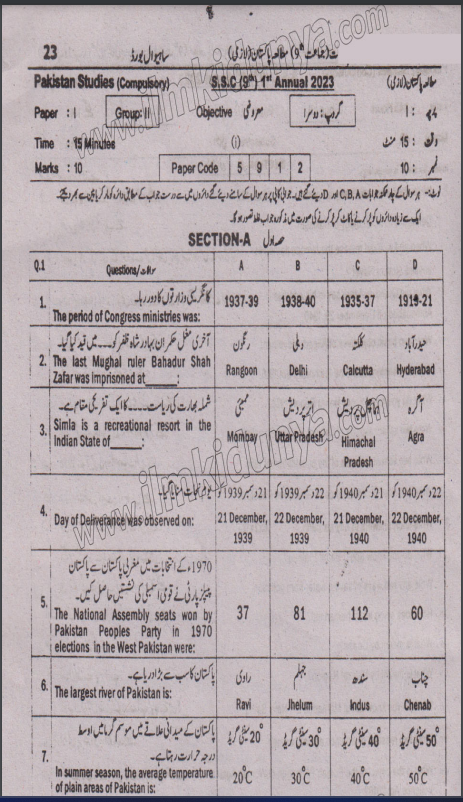 23 مطالعہ پاکستان (لازمی) ساہیوال بورڈ
Pakistan Studies (Compulsory) S.S.C (9th) 1st Annual 2023 مطالعہ پاکستان (لازمی)
Paper : I Group: II Objective معروضی گروپ: دوسرا پرچہ: I
Time : 15 Minutes (i) وقت: 15 منٹ
Marks : 10 Paper Code 5 9 1 2 نمبر: 10
SECTION-A حصہ اول
Q.1 Questions/سوالات A B C D
1. کانگریسی وزارتوں کا دور رہا۔ 1937-39 1938-40 1935-37
The period of Congress ministries was:
آخری مغل حکمران بہادر شاہ ظفر کو ---- میں قید کیا گیا۔ رنگون دہلی کلکتہ حیدرآباد
2. The last Mughal ruler Bahadur Shah Zafar was imprisoned at_____: Rangoon Delhi Calcutta Hyderabad
شملہ بھارت کی ریاست ---- کا ایک تفریحی مقام ہے۔ ممبئی اتر پردیش ہماچل پردیش آگرہ
3. Simla is a recreational resort in the Indian State of_____: Mombay Uttar Pradesh Himachal Pradesh Agra
21دسمبر 1939ء کو 22دسمبر 1939ء کو 21دسمبر 1940ء کو 22دسمبر 1940ء کو
4. Day of Deliverance was observed on: 21 December, 1939 22 December, 1939 21 December, 1940 22 December, 1940
1970ء کے انتخابات میں مغربی پاکستان سے پاکستان
پیپلز پارٹی نے قومی اسمبلی کی نشستیں حاصل کیں۔
5. The National Assembly seats won by 37 81 112 60
Pakistan Peoples Party in 1970
elections in the West Pakistan were:
پاکستان کا سب سے بڑا دریا ہے۔ راوی جہلم سندھ چناب
6. The largest river of Pakistan is: Ravi Jhelum Indus Chenab
پاکستان کے میدانی علاقے میں موسم گرما میں اوسط 20° سینٹی گریڈ 30° سینٹی گریڈ 40° سینٹی گریڈ 50° سینٹی گریڈ
درجہ حرارت رہتا ہے۔
7. In summer season, the average temperature 20°C 30°C 40°C 50°C
of plain areas of Pakistan is:
www.ilmkidunya.com
www.ilmkidunya.com